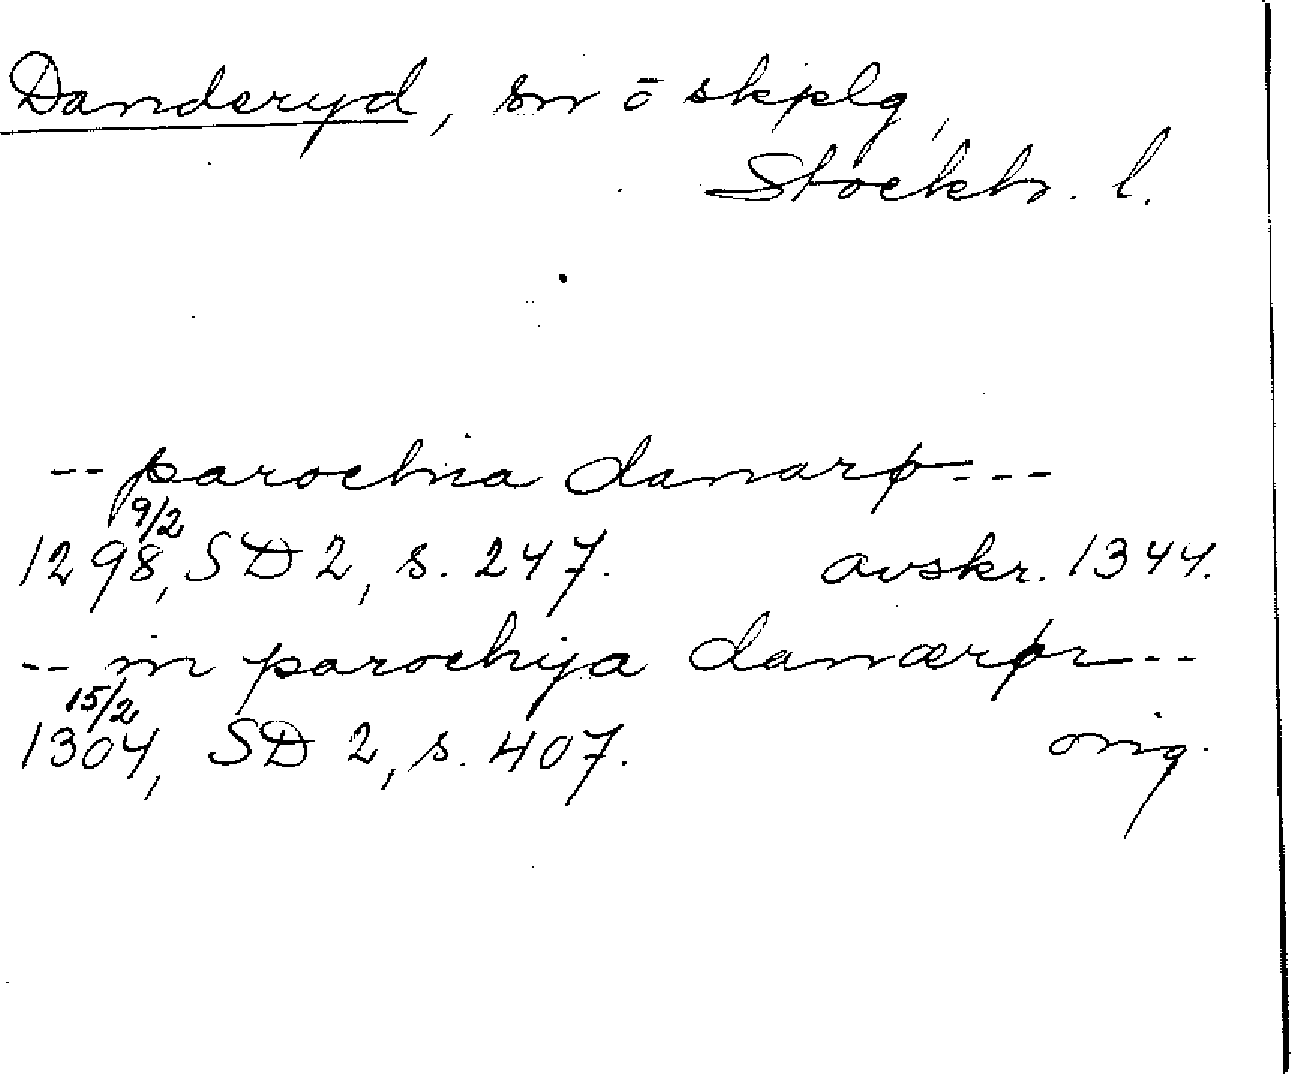 Danderyd, sn o skplg,
Stockh. l.
-- parochia danarø---
9/2
1298, SD 2, s. 247. avskr. 1344.
-- in parochija danærør--
15/2
1304, SD 2, s. 407. orig.